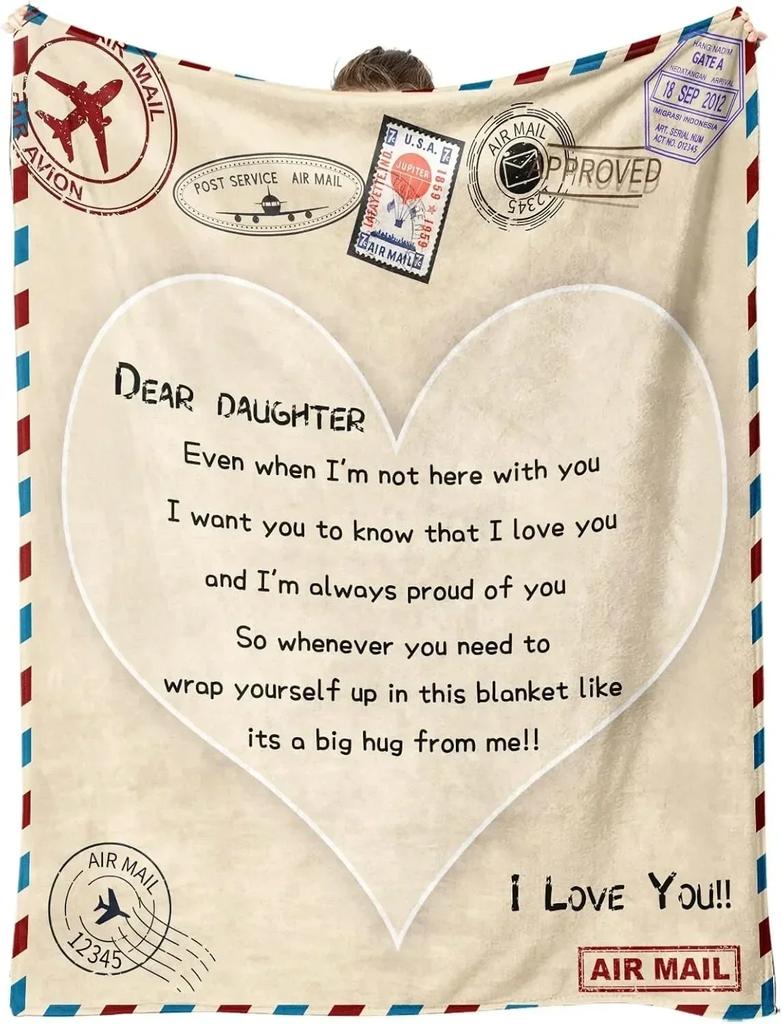 AIR MAIL
PAR AVION
POST SERVICE AIR MAIL
U.S.A.
JUPITER
LAFAYETTE, IND.
1859 ★ 1959
AIR MAIL
AIR MAIL
12345
APPROVED
HANG NADIM
GATE A
KEDATANGAN ARRIVAL
18 SEP 2012
IMIGRASI INDONESIA
ART. SERIAL NUM
ACT NO. 012345
DEAR DAUGHTER
Even when I'm not here with you
I want you to know that I love you
and I'm always proud of you
So whenever you need to
wrap yourself up in this blanket like
its a big hug from me!!
I LOVE YOU!!
AIR MAIL
12345
AIR MAIL